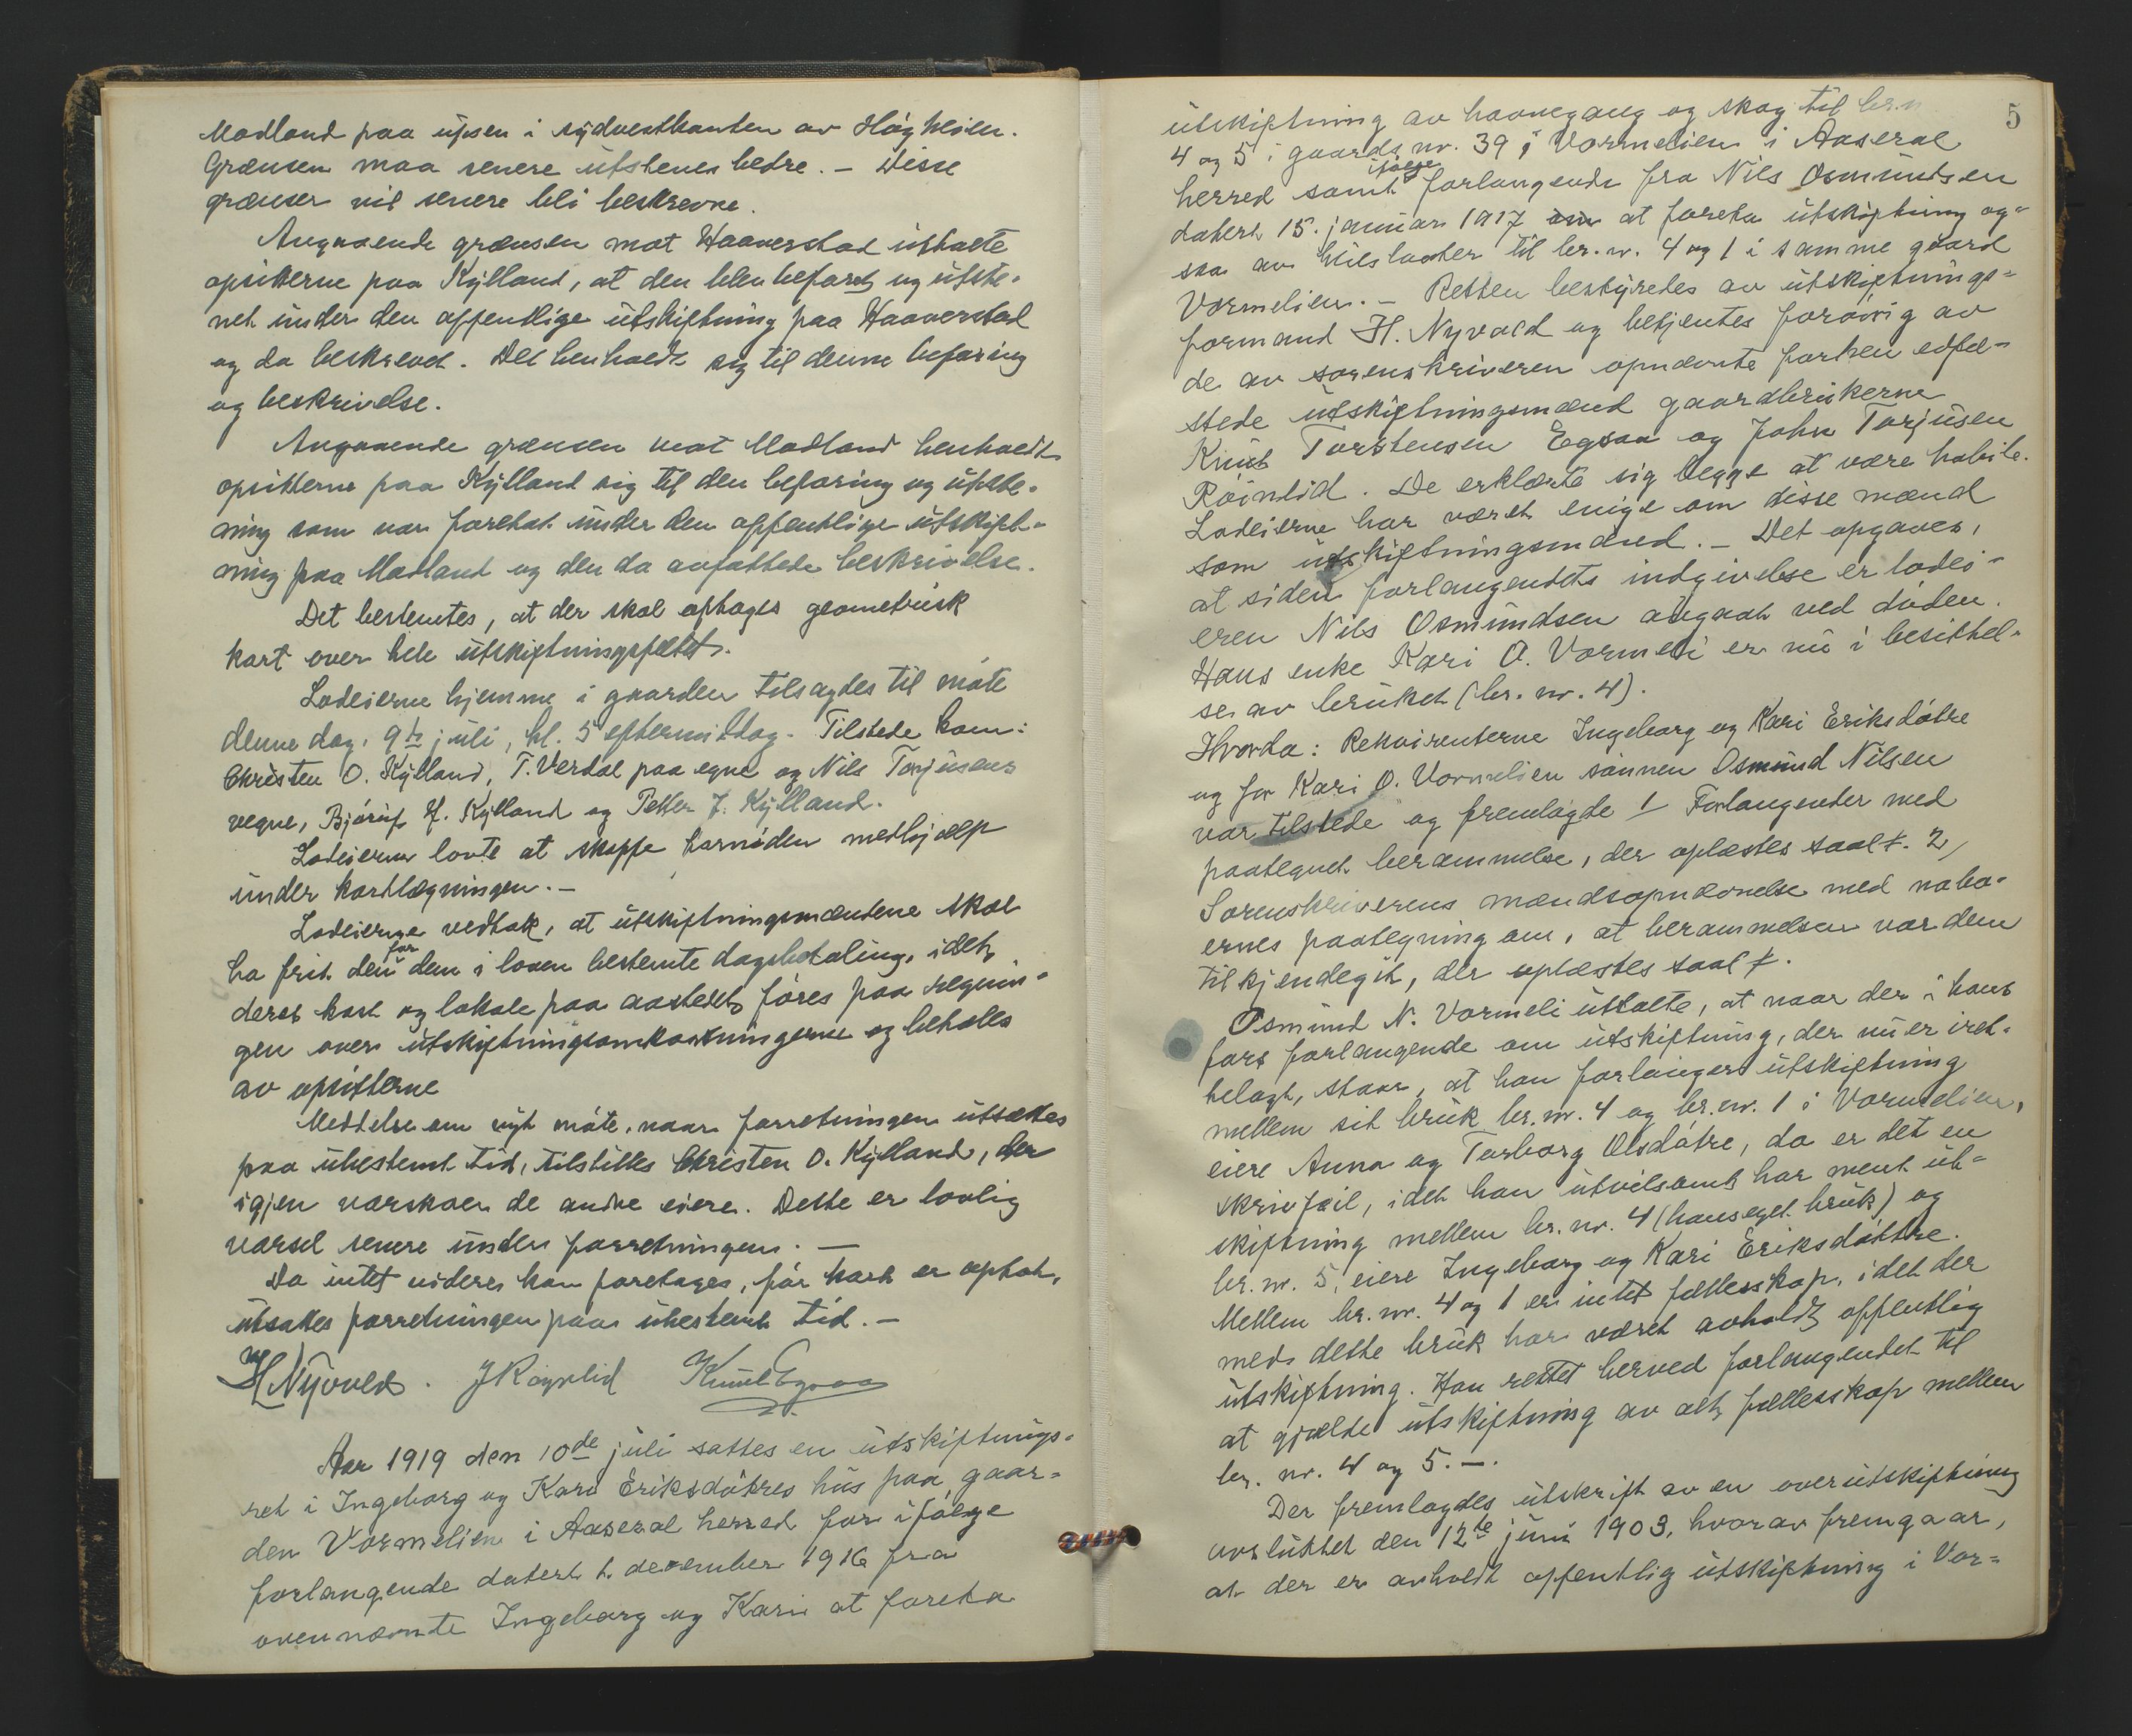 Madland paa upsen i sydvestkanten av Høgheien.
Grænsen maa senere utstenes bedre. – Disse
grænser vil senere bli beskrevne.
Angaaende grænsen mot Haaverstad uttalte
opsitterne paa Kylland, at den blev befaret og utste-
net under den offentlige utskiftning paa Haaverstad
og da beskrevet. Det henholdt sig til denne befaring
og beskrivelse.
Angaaende grænsen mot Madland henholdt
opsitterne paa Kylland sig til den befaring og utste-
ning som var foretat under den offentlige utskift-
ning paa Madland og den da avfattede beskrivelse.
Det bestemtes, at der skal optages geometrisk
kart over hele utskiftningsfeltet.
Lodeierne hjemme i gaarden tilsagdes til møte
denne dag, 9de juli, kl. 5 eftermiddag. Tilstede kom:
Christen O. Kylland, T. Verdal paa egne og Nils Torjusens
vegne, Bjørulf H. Kylland og Petter J. Kylland.
Lodeierne lovte at skaffe fornøden medhjælp
under kartlægningen. –
Lodeierne vedtok, at utskiftningsmændene skal
ha frit den for dem i loven bestemte dagsbetaling, idet
deres kost og lokale paa aastedet føres paa regnin-
gen over utskiftningsomkostningerne og betales
av opsitterne
Meddelse om nyt møte, naar forretningen utsættes
paa ubestemt tid, tilstilles Christen O. Kylland, der
igjen varskoer de andre eiere. Dette er lovlig
varsel senere under forretningen. –
Da intet videre kan foretages, før kart er optat,
utsattes forretningen paa ubestemt tid. –
H Nyvold. J Røynlid Knut Egsaa
Aar 1919 den 10de juli sattes en utskiftnings-
ret i Ingeborg og Kari Eriksdøtres hus paa gaar-
den Vormelien i Aaseral herred for ifølge
forlangende datert 1. december 1916 fra
ovennævnte Ingeborg og Kari at foreta
5
utskiftning av havnegang og skog til br.n
4 og 5 i gaards nr. 39, Vormelien i Aaseral
herred samt ifølge forlangende fra Nils Osmundsen
datert 15. januar 1917 om at foreta utskiftning og-
saa av hiislaatter til br. nr. 4 og 1 i samme gaard
Vormelien. – Retten bestyredes av utskiftnings-
formand H. Nyvold og betjentes forøvrig av
de av sorenskriveren opnævnte forhen edfæ-
stede utskiftningsmænd gaardbrukerne
Knut Torstensen Egsaa og John Torjusen
Røinlid. De erklærte sig begge at være habile.
Lodeierne har været enige om disse mænd
som utskiftningsmænd. – Det opgaves,
at siden forlangendets indgivelse er lodei-
eren Nils Osmundsen avgaat ved døden.
Hans enke Kari O. Vormeli er nu i besittel-
se av bruket (br. nr. 4).
Hvorda: Rekvirenterne Ingeborg og Kari Eriksdøtre
og for Kari O. Vormelien sønnen Osmund Nilsen
var tilstede og fremlagde 1/ Forlangender med
paategnet berammelse, der oplæstes saal.. 2/
Sorenskriverens mændsopnævnelse med nabo-
ernes paategning om, at berammelsen var dem
tilkjendegit, der oplæstes saal..
Osmund N. Vormeli uttalte, at naar der i hans
fars forlangende om utskiftning, der nu er iret-
telagt, staar, at han forlanger utskiftning
mellem sit bruk br. nr. 4 og br. nr. 1 i Vormelien,
eiere Anna og Torborg Olsdøtre, da er det en
skrivfeil, idet han utvilsomt har ment ut-
skiftning mellem br. nr. 4 (hans eget bruk) og
br. nr. 5, eiere Ingeborg og Kari Eriksdøttre.
Mellem br. nr. 4 og 1 er intet fællesskap, idet der
med dette bruk har været avholdt offentlig
utskiftning. Han rettet herved forlangendet til
at gjælde utskiftning av alt fællesskap mellem
br. nr. 4 og 5. –.
Der fremlagdes utskrift av en overutskiftning
avsluttet den 12te juni 1903, hvorav fremgaar,
at der er avholdt offentlig utskiftning i Vor-